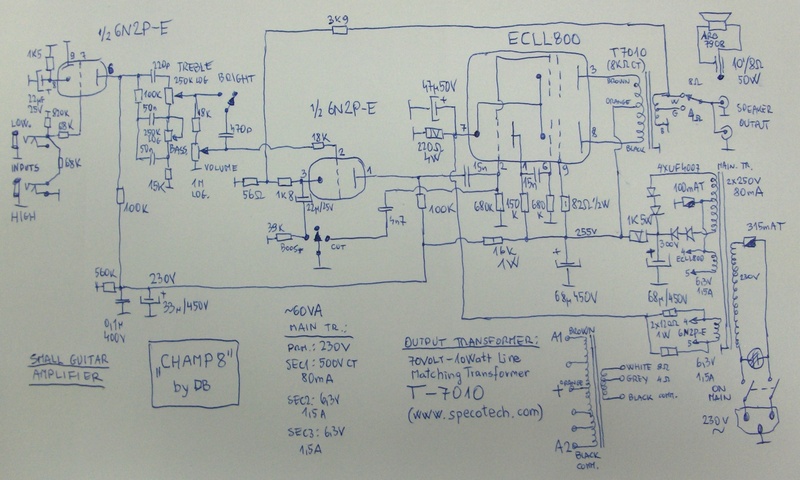 ½ 6N2P-E
3K9
ECLL800
T7010
(8KΩ CT)
ARD
7908
10"/8Ω
50W
1K5
9
7
8
6
220p
TREBLE
250K LOG
BRIGHT
22µF
25V
820K
68K
LOW
INPUTS
HIGH
68K
100K
50n
250K
LOG
BASS
50n
15K
18K
470p
VOLUME
1M
LOG.
½ 6N2P-E
18K
2
3
1
56Ω
1K8
22µ/25V
39K
BOOST
CUT
47µ50V
220Ω
4W
7
15n
4n7
100K
2
1
15n
6
9
3
8
BROWN
ORANGE
BLACK
8Ω
W
G
4Ω
B
SPEAKER
OUTPUT
680K
150K
680K
82Ω ½W
255V
16K
1W
68µ 450V
1K5W
300V
68µ/450V
4XUF4007
100mAT
MAIN. TR.
2x250V
80mA
315mAT
4
ECLL800
5
6,3V
1,5A
230V
2x120Ω
1W
4
6N2P-E
5
6,3V
1,5A
ON
MAIN
230V
~
100K
560K
230V
0,1µ
400V
33µ/450V
SMALL GUITAR
AMPLIFIER
"CHAMP 8"
by DB
~60VA
MAIN TR.:
PRIM.: 230V
SEC1: 500V CT
80mA
SEC2: 6,3V
1,5A
SEC3: 6,3V
1,5A
OUTPUT TRANSFORMER:
70VOLT-10Watt Line
Matching Transformer
T-7010
(www.specotech.com)
A1
BROWN
ORANGE
+
A2
BLACK
COMM.
WHITE 8Ω
GREY 4Ω
BLACK COMM.